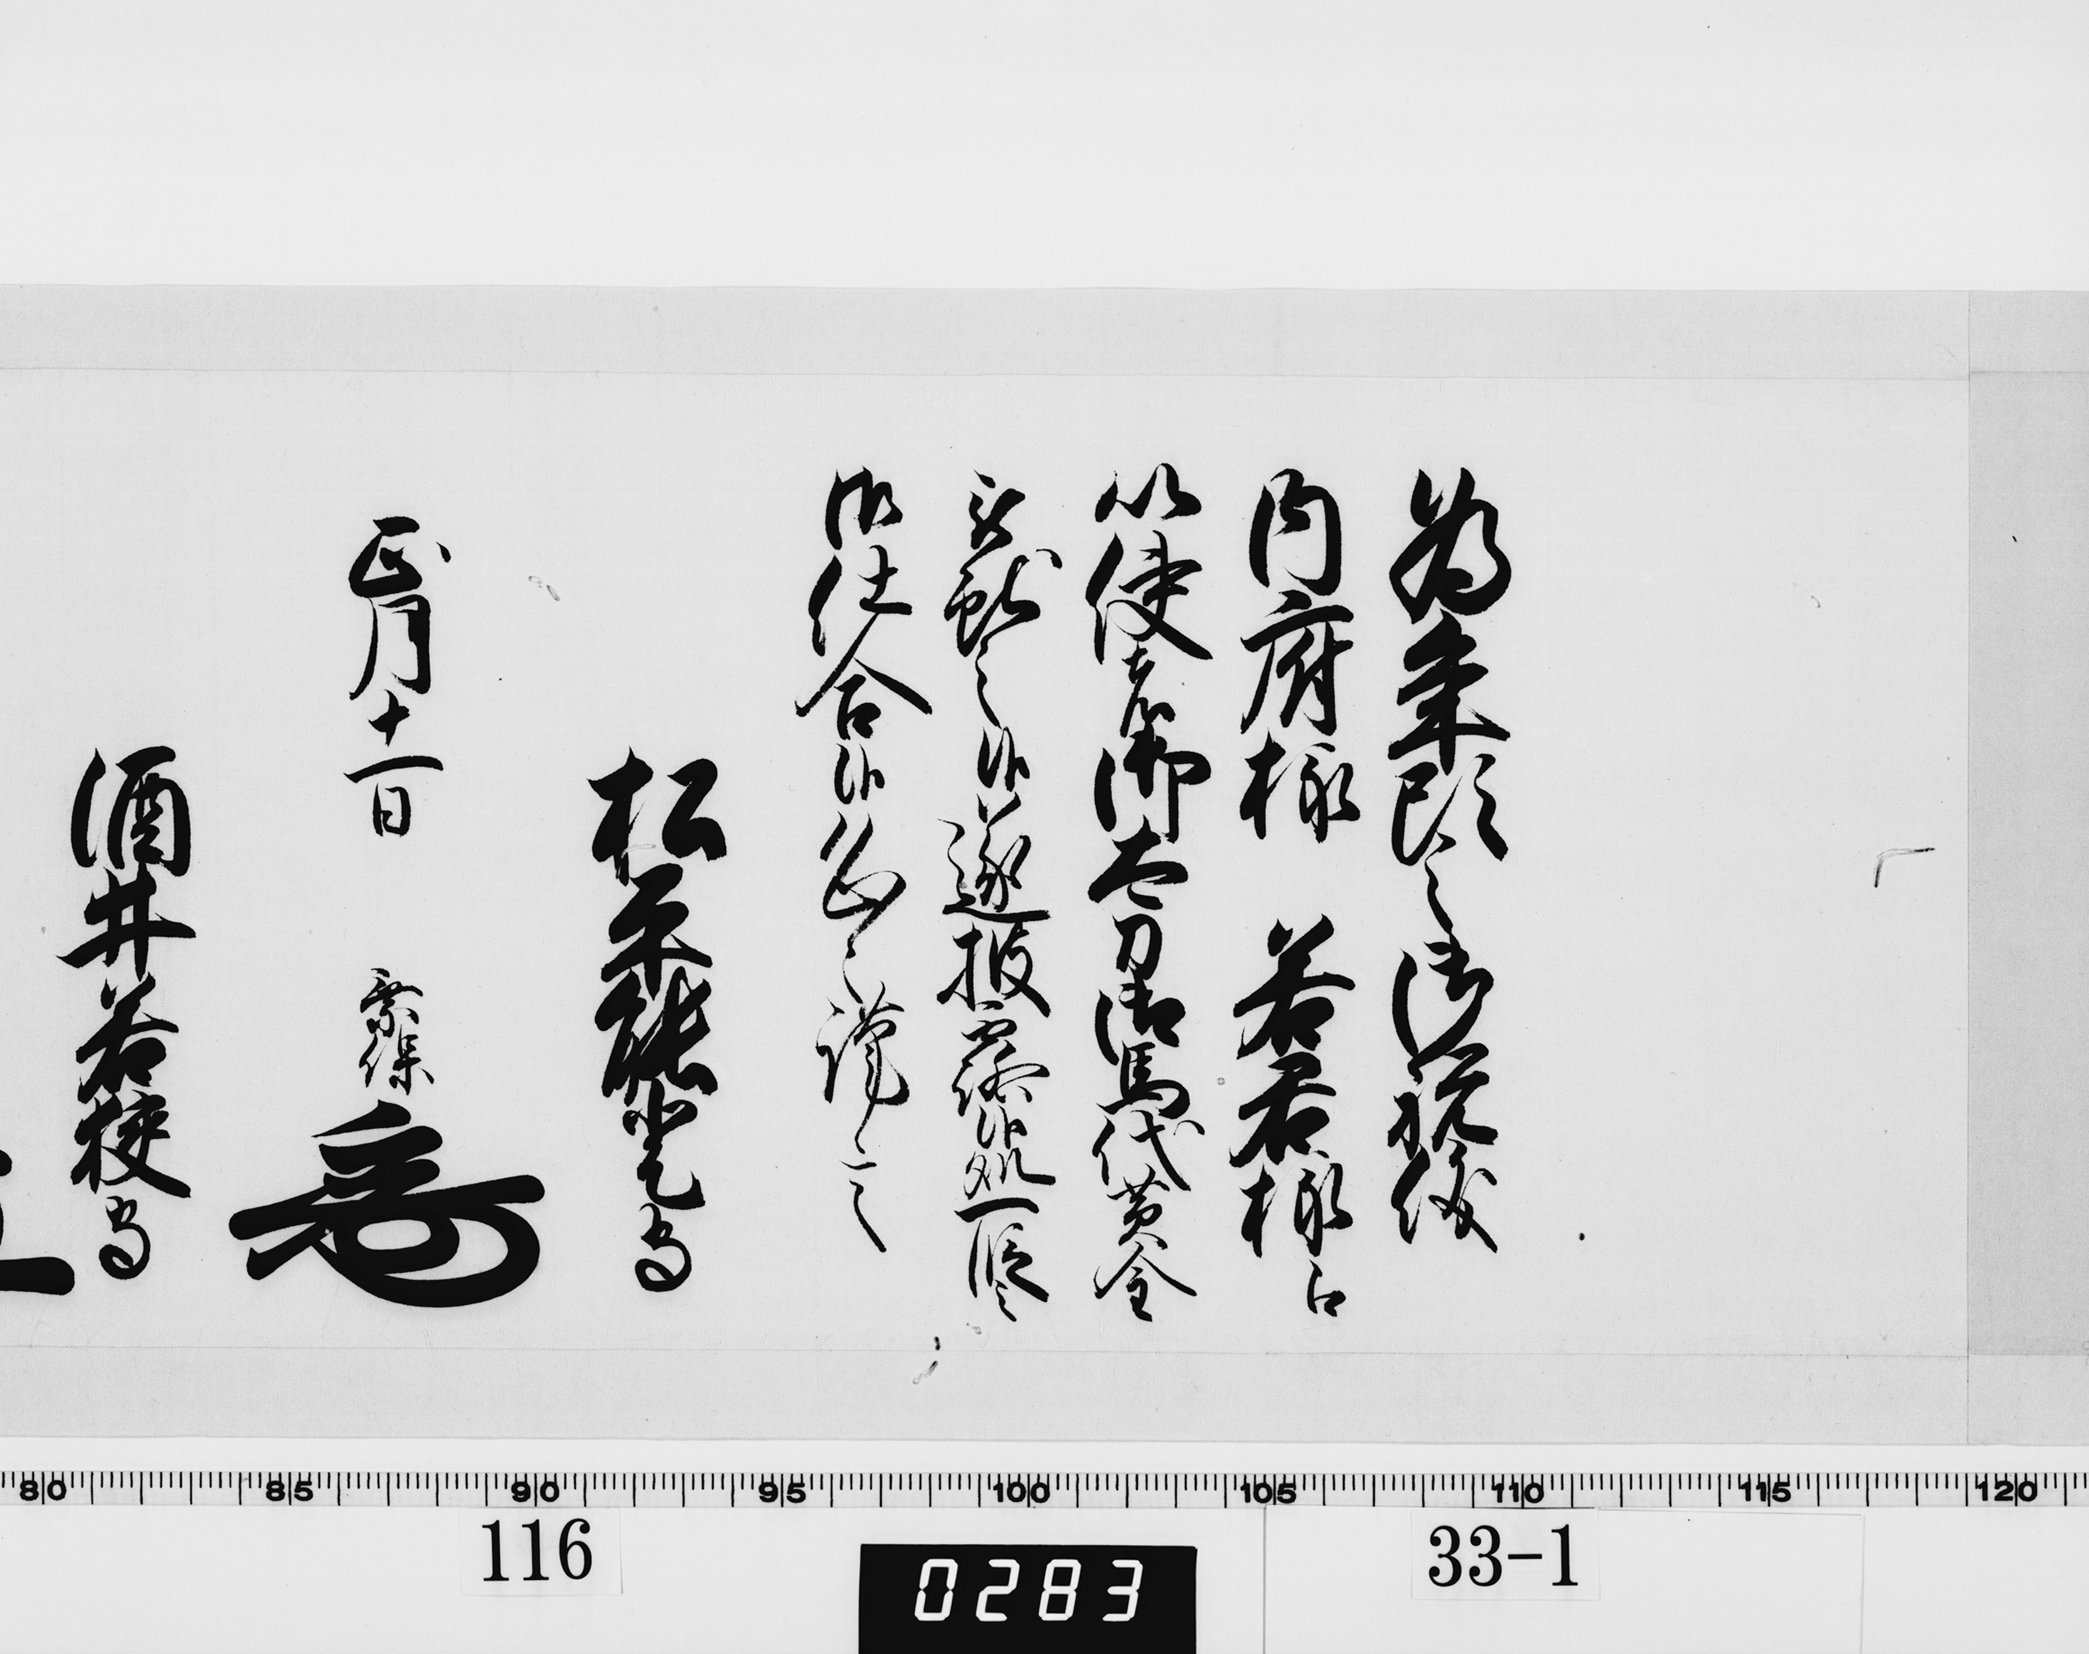 為年頭之御祝儀
内府様 若君様江
以使者御太刀御馬代黄金
被献之候遂披露候処一段之
御仕合候恐々謹言
松平能登守
正月十一日 乗保
酒井若狭守
80 85 90 95 100 105 110 115 120
116
0283
33-1